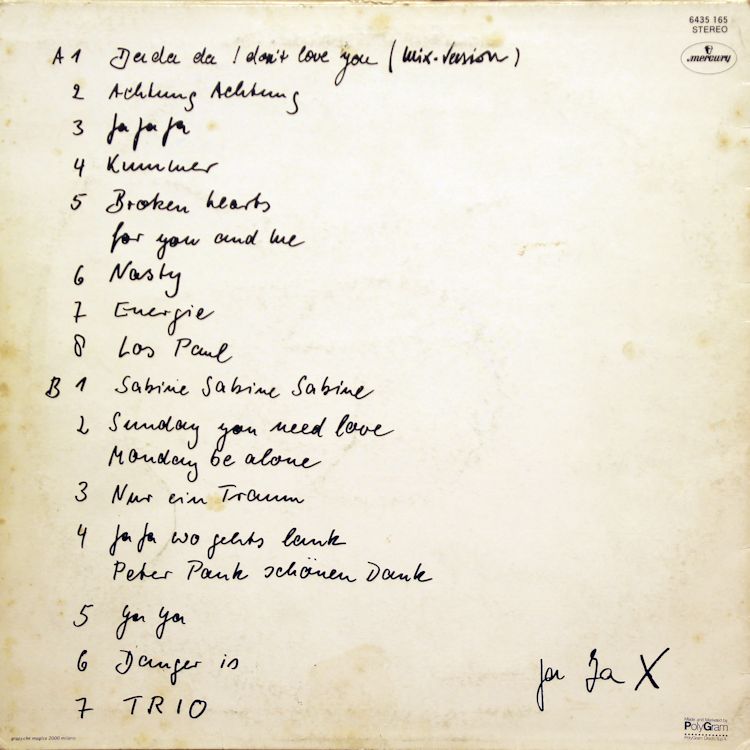 6435 165
STEREO
mercury
A 1 Da da da I don't love you (Mix-Version)
2 Achtung Achtung
3 Ja Ja Ja
4 Kummer
5 Broken hearts
for you and me
6 Nasty
7 Energie
8 Los Paul
B 1 Sabine Sabine Sabine
2 Sunday you need love
Monday be alone
3 Nur ein Traum
4 Ja Ja wo gehts lank
Peter Pank schönen Dank
5 Ya Ya
6 Danger is
7 TRIO
Ja Ja X
Made and Marketed by
PolyGram
PolyGram Dischi S.p.A.
grafiche magica 2000 milano